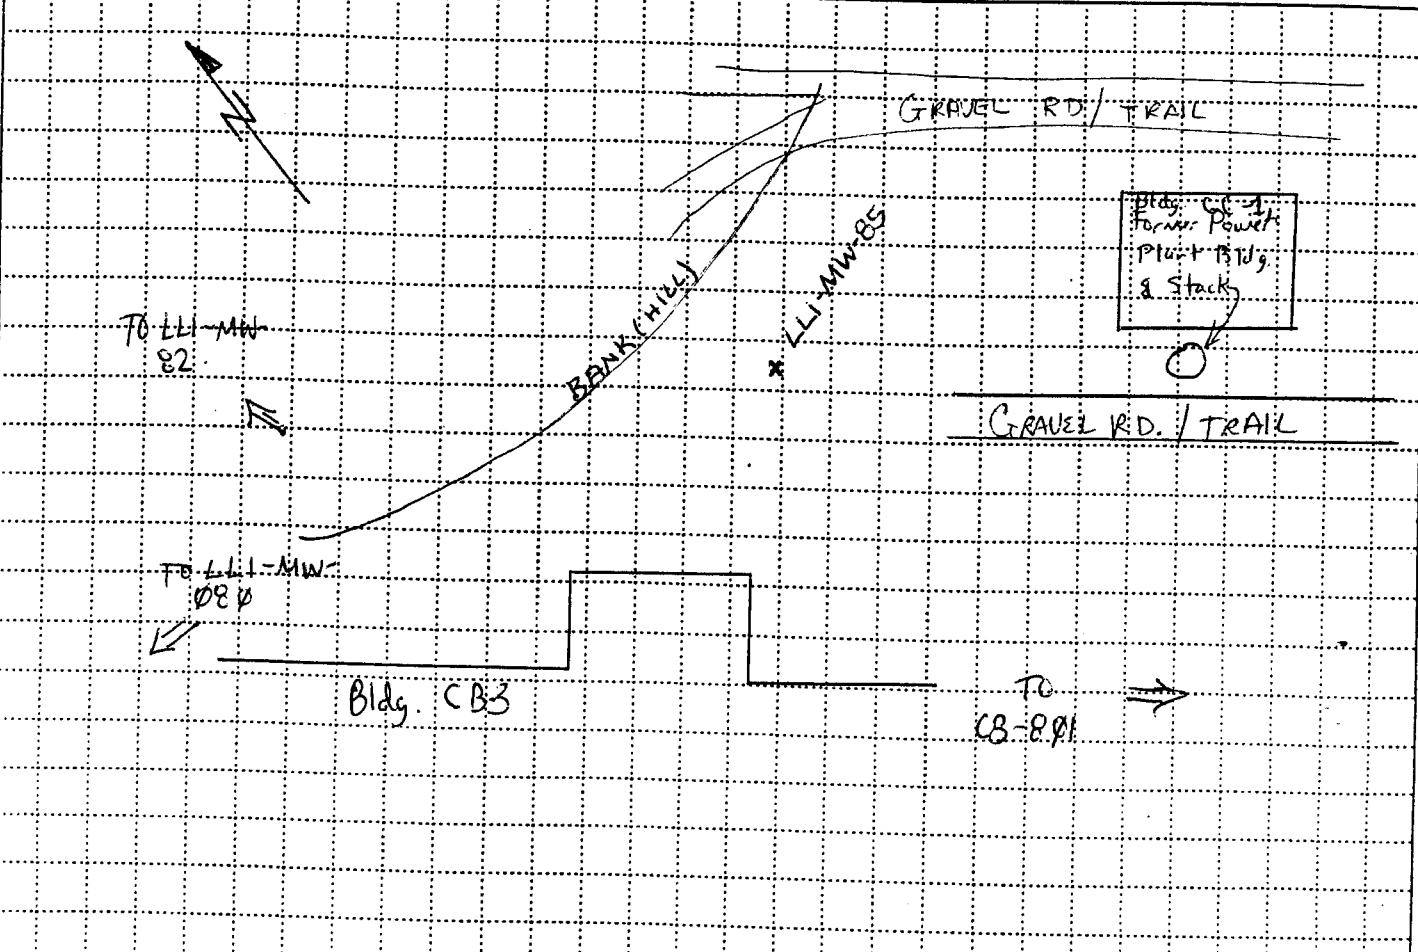 N
GRAVEL RD / TRAIL
Bldg. CC-1
Former Power
Plant Bldg.
& Stack
LL1-MW-85
BANK (HILL)
TO LL1-MW-
82
x
GRAVEL RD. / TRAIL
TO LL1-MW-
080
Bldg. CB3
TO
CB-801